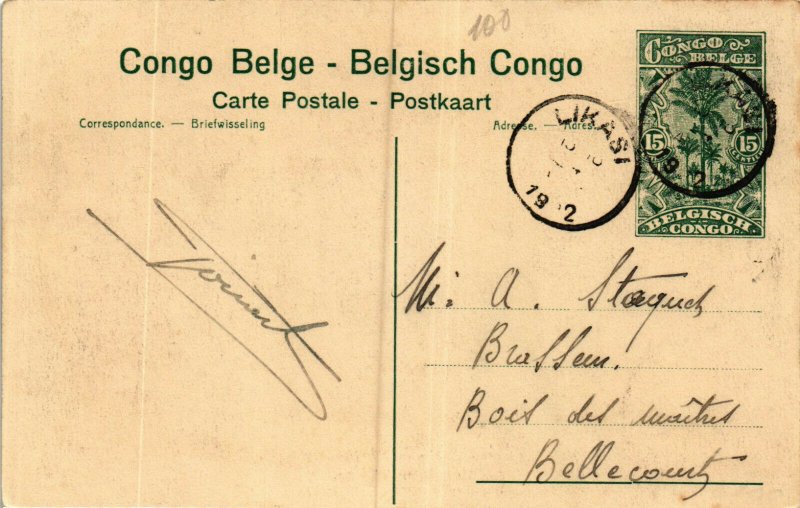 100
Congo Belge - Belgisch Congo
Carte Postale - Postkaart
Correspondance. — Briefwisseling
Adresse. — Adres.
CONGO BELGE
15 15
BELGISCH CONGO
LIKASI
19 2
M: A. Staquet
Brasseur.
Bois des maîtres
Bellecourt